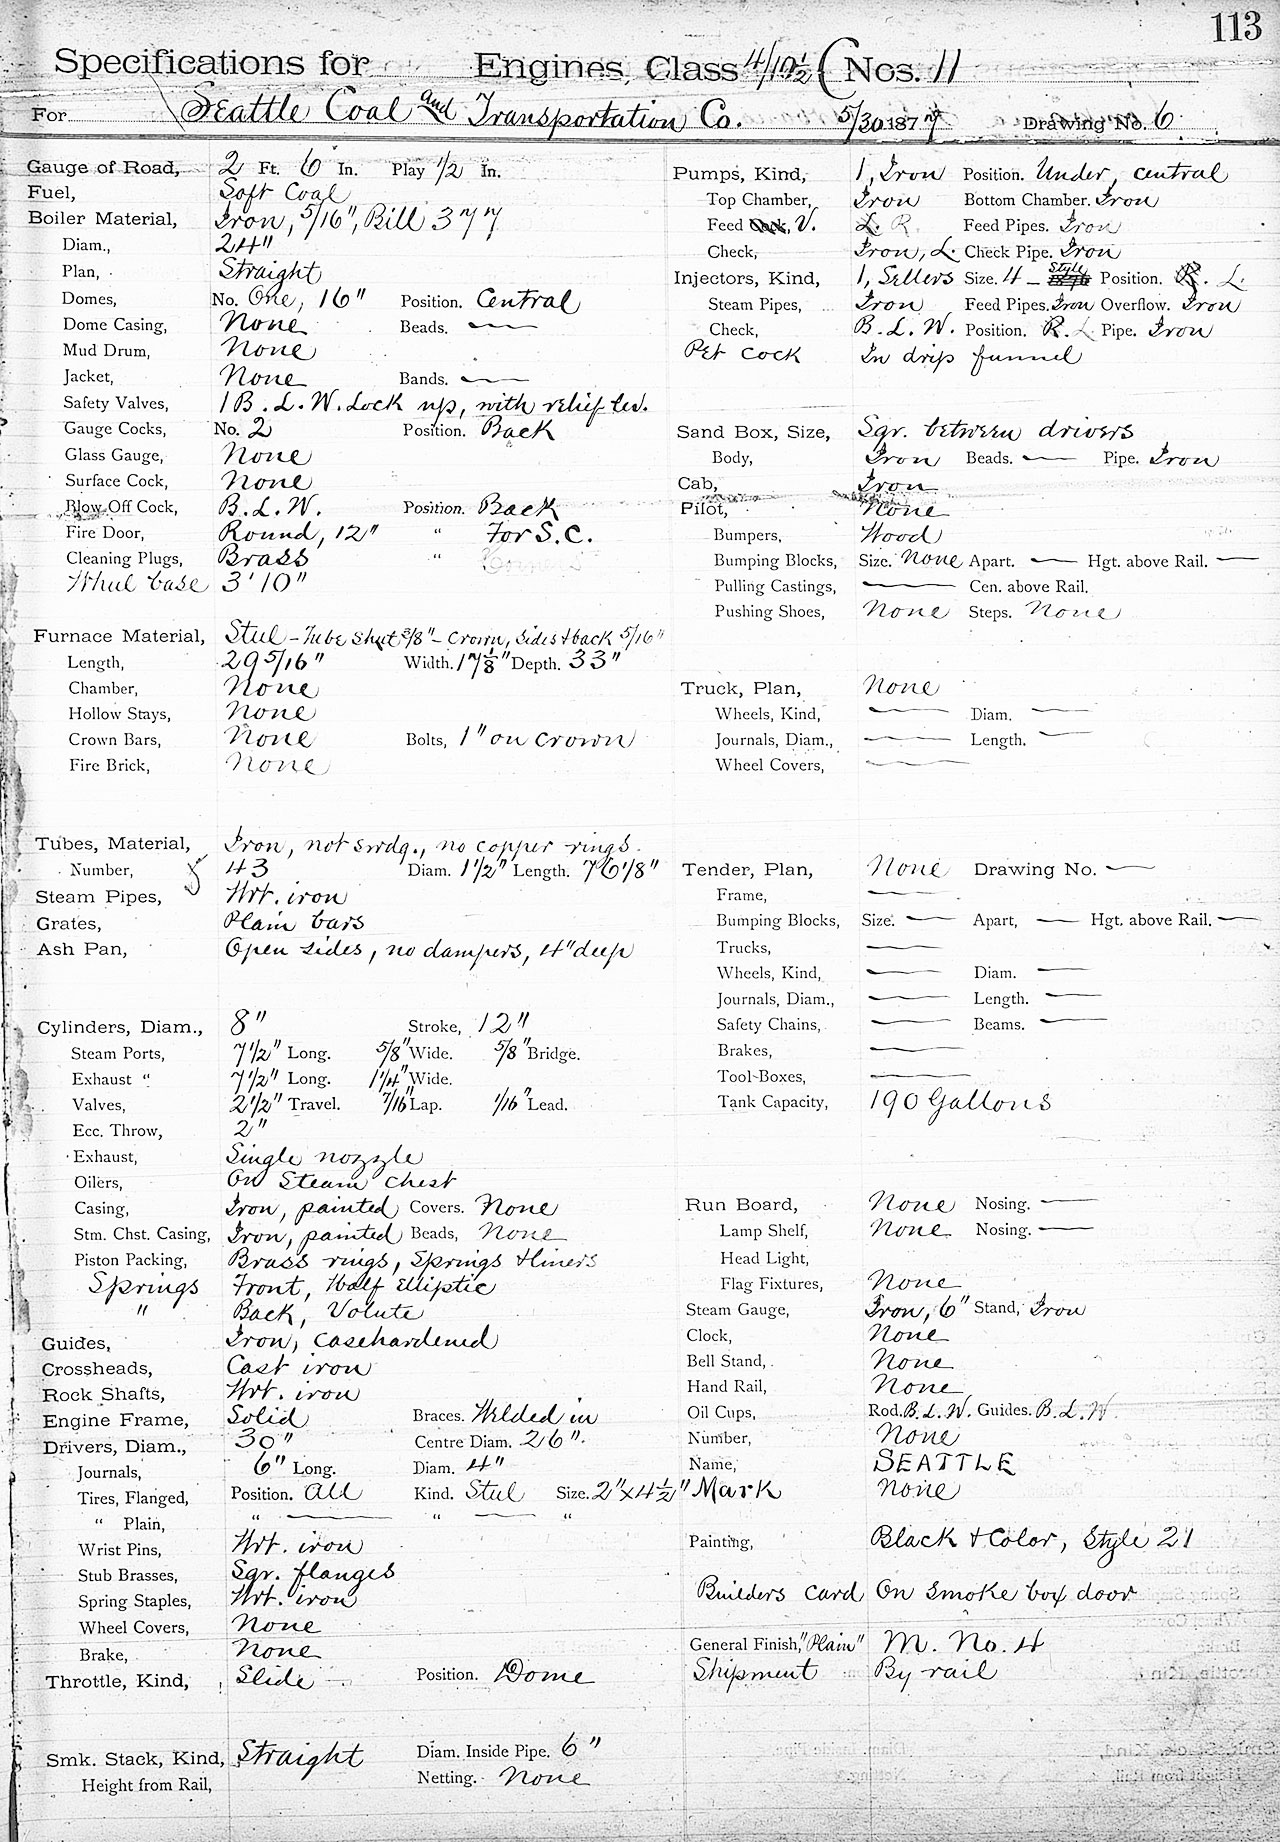 113
Specifications for Engines, Class 4/10½ C Nos. 11
For Seattle Coal and Transportation Co. 5/30 1877 Drawing No. 6
Gauge of Road, 2 Ft. 6 In. Play 1/2 In.
Fuel, Soft Coal
Boiler Material, Iron, 5/16", Bill 377
Diam., 24"
Plan, Straight
Domes, No. One, 16" Position. Central
Dome Casing, None Beads. —
Mud Drum, None
Jacket, None Bands. —
Safety Valves, 1 B. L. W. Lock up, with relief lev.
Gauge Cocks, No. 2 Position. Back
Glass Gauge, None
Surface Cock, None
Blow Off Cock, B. L. W. Position. Back
Fire Door, Round, 12" " For S. C.
Cleaning Plugs, Brass "
Wheel base 3' 10"
Furnace Material, Steel - Tube Sheet 3/8" - Crown, Sides & back 5/16"
Length, 29 5/16" Width. 17 1/8" Depth. 33"
Chamber, None
Hollow Stays, None
Crown Bars, None Bolts, 1" on crown
Fire Brick, None
Tubes, Material, Iron, not swdg., no copper rings.
Number, 43 Diam. 1 1/2" Length. 76 1/8"
Steam Pipes, Wrt. iron
Grates, Plain bars
Ash Pan, Open sides, no dampers, 4" deep
Cylinders, Diam., 8" Stroke, 12"
Steam Ports, 7 1/2" Long. 5/8" Wide. 5/8" Bridge.
Exhaust " 7 1/2" Long. 1 1/4" Wide.
Valves, 2 1/2" Travel. 7/16" Lap. 1/16" Lead.
Ecc. Throw, 2"
Exhaust, Single nozzle
Oilers, On Steam chest
Casing, Iron, painted Covers. None
Stm. Chst. Casing, Iron, painted Beads, None
Piston Packing, Brass rings, Springs & liners
Springs Front, Half Elliptic
" Back, Volute
Guides, Iron, casehardened
Crossheads, Cast iron
Rock Shafts, Wrt. iron
Engine Frame, Solid Braces. Welded in
Drivers, Diam., 30" Centre Diam. 26".
Journals, 6" Long. Diam. 4"
Tires, Flanged, Position. All Kind. Steel Size. 2" x 4 1/2"
" Plain, " — " — "
Wrist Pins, Wrt. iron
Stub Brasses, Sqr. flanges
Spring Staples, Wrt. iron
Wheel Covers, None
Brake, None
Throttle, Kind, Slide Position. Dome
Smk. Stack, Kind, Straight Diam. Inside Pipe. 6"
Height from Rail, Netting. None
Pumps, Kind, 1, Iron Position. Under, central
Top Chamber, Iron Bottom Chamber. Iron
Feed Cock, V. L. R. Feed Pipes. Iron
Check, Iron, L. Check Pipe. Iron
Injectors, Kind, 1, Sellers Size. 4 - Style 1876 Position. R. L.
Steam Pipes, Iron Feed Pipes. Iron Overflow. Iron
Check, B. L. W. Position. R. L Pipe. Iron
Pet Cock In drip funnel
Sand Box, Size, Sqr. between drivers
Body, Iron Beads. — Pipe. Iron
Cab, Iron
Pilot, None
Bumpers, Wood
Bumping Blocks, Size. None Apart. — Hgt. above Rail. —
Pulling Castings, — Cen. above Rail.
Pushing Shoes, None Steps. None
Truck, Plan, None
Wheels, Kind, — Diam. —
Journals, Diam., — Length. —
Wheel Covers, —
Tender, Plan, None Drawing No. —
Frame, —
Bumping Blocks, Size. — Apart, — Hgt. above Rail. —
Trucks, —
Wheels, Kind, — Diam. —
Journals, Diam., — Length. —
Safety Chains, — Beams. —
Brakes, —
Tool Boxes, —
Tank Capacity, 190 Gallons
Run Board, None Nosing. —
Lamp Shelf, None Nosing. —
Head Light,
Flag Fixtures, None
Steam Gauge, Iron, 6" Stand, Iron
Clock, None
Bell Stand, None
Hand Rail, None
Oil Cups, Rod. B. L. W. Guides. B. L. W.
Number, None
Name, SEATTLE
Mark None
Painting, Black & Color, Style 21
Builders card On smoke box door
General Finish, "Plain" M. No. 4
Shipment By rail